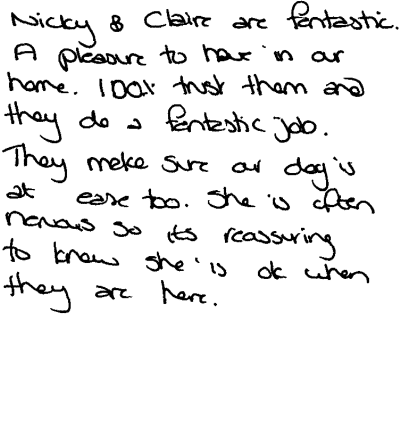 Nicky & Claire are fantastic.
A pleasure to have in our
home. 100% trust them and
they do a fantastic job.
They make sure our dog is
at ease too. She is often
nervous so its reassuring
to know she is ok when
they are here.